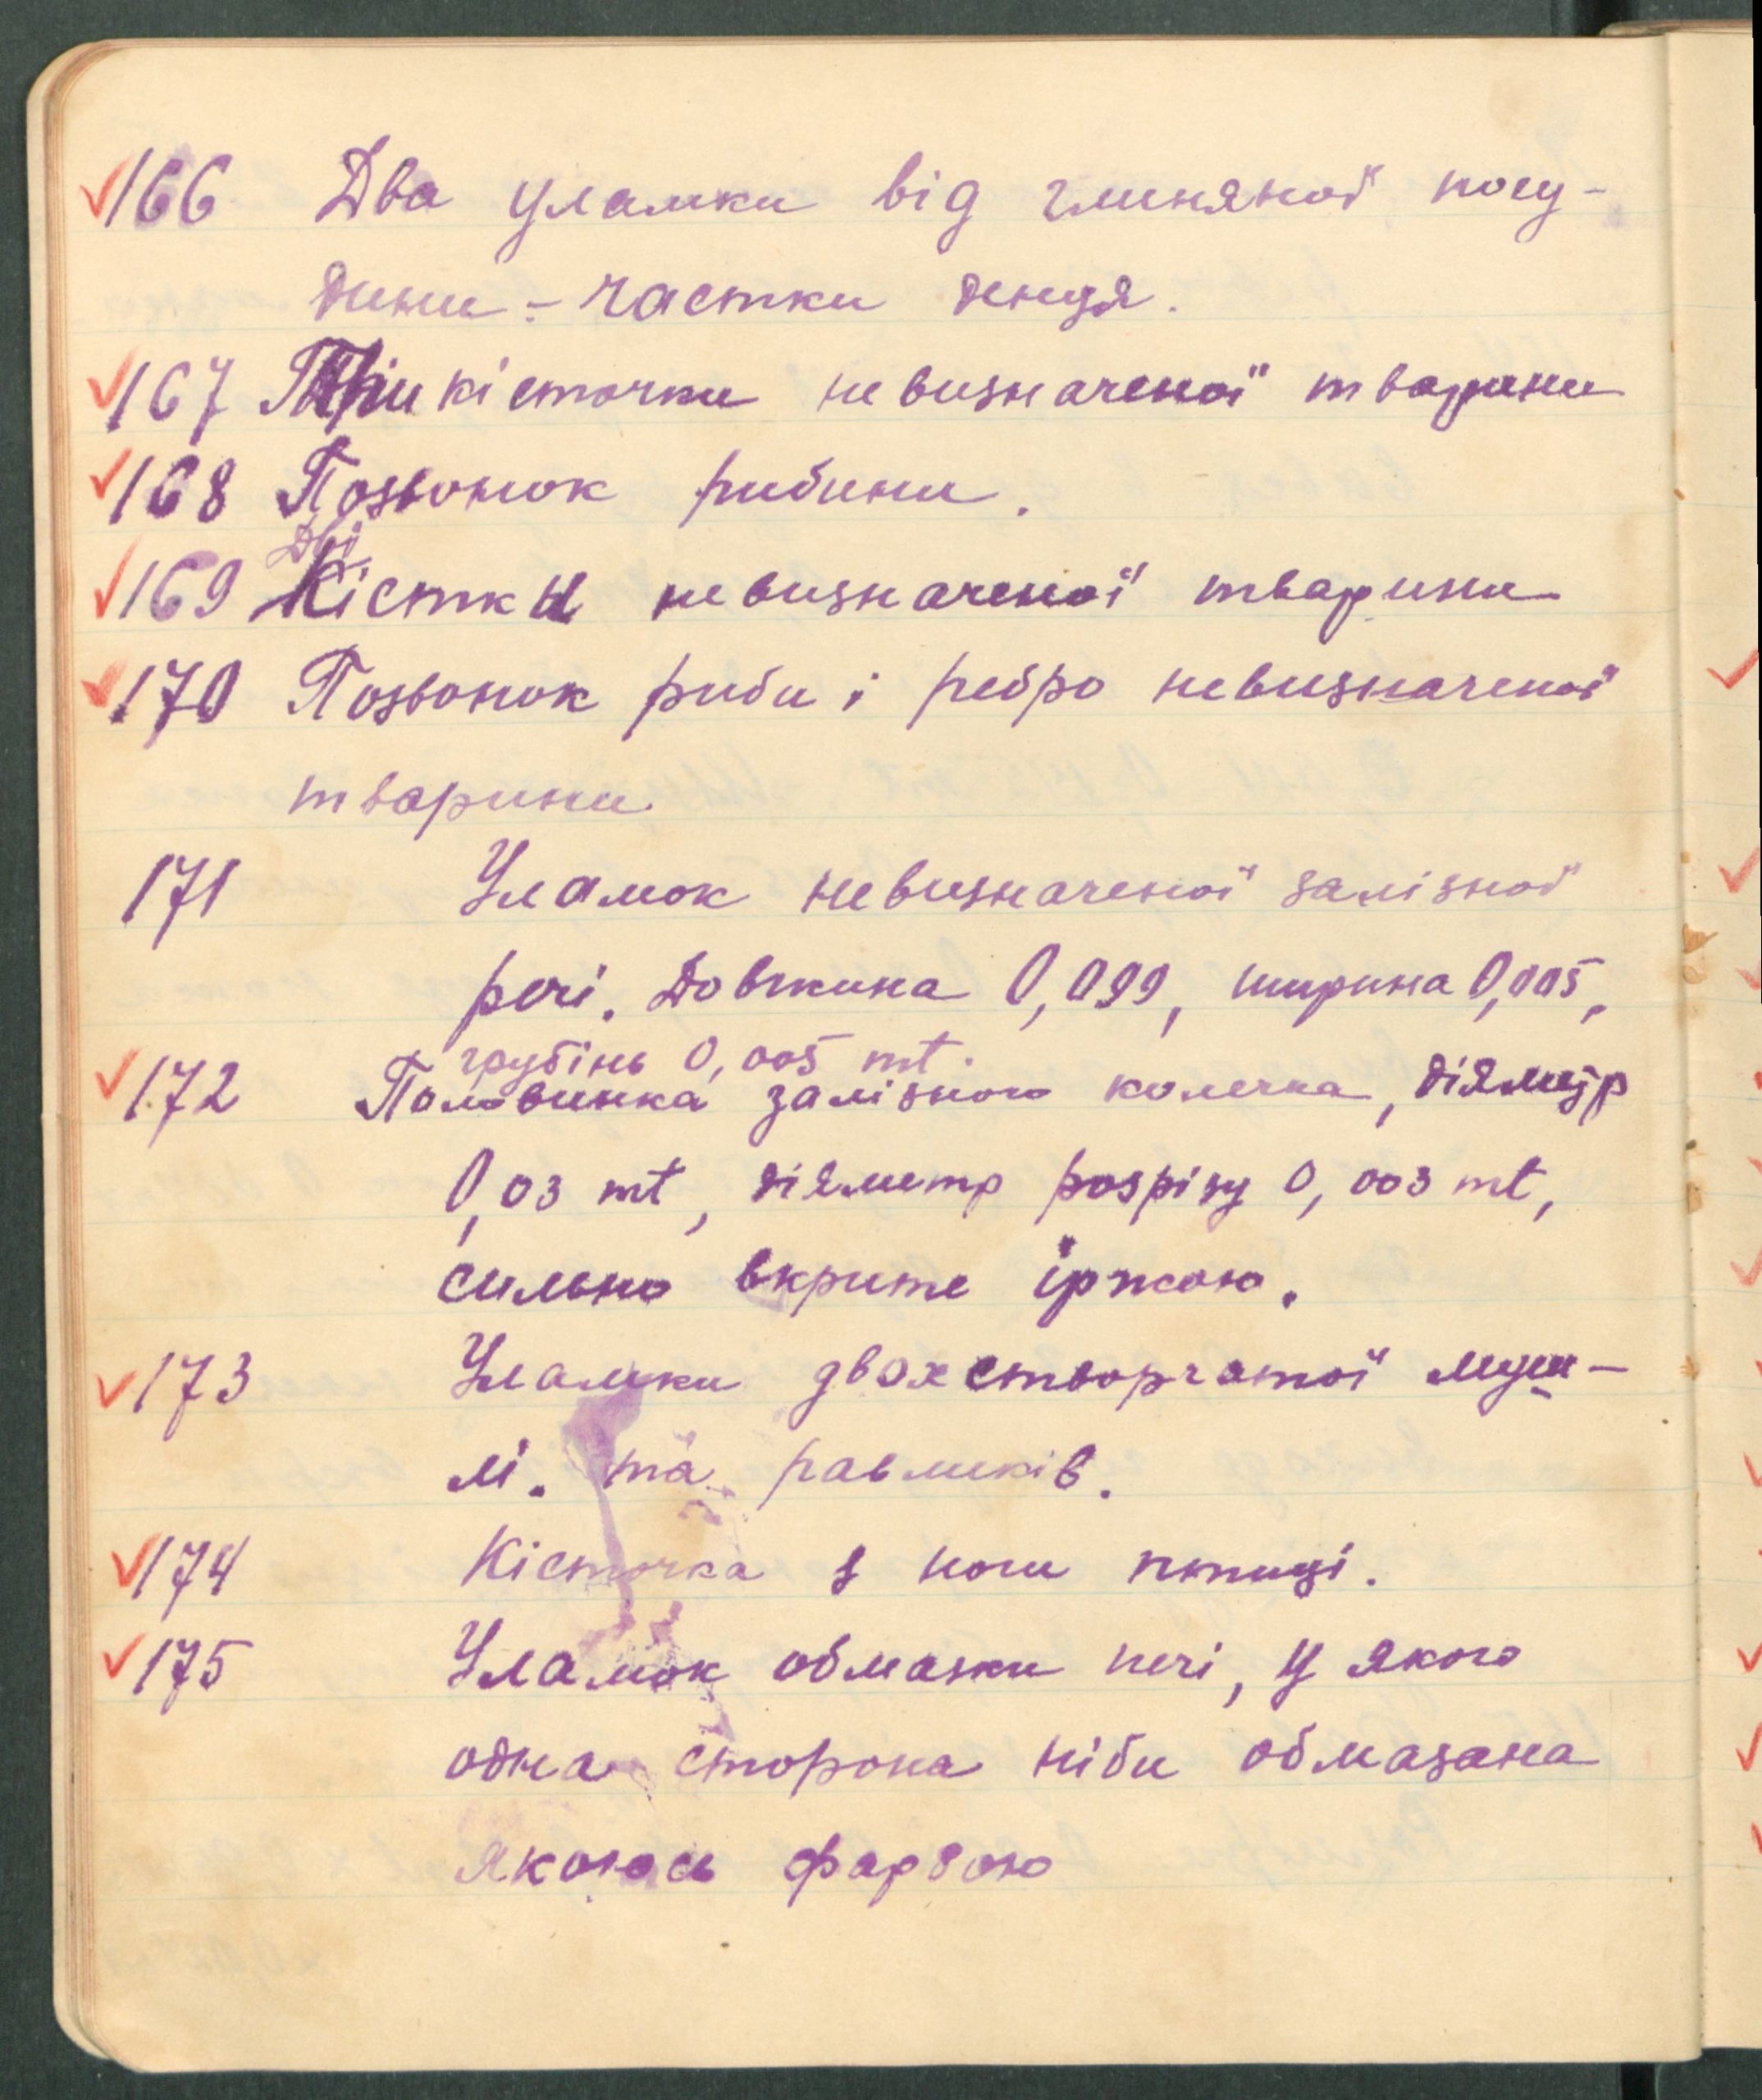 166 Два уламки від глиняної посу-
дини - частки денця.
167 Три кісточки невизначеної тварини
168 Позвонок рибини.
Дві
169 Кістки невизначеної тварини
170 Позвонок риби і ребро невизначеної
тварини
171 Уламок невизначеної залізної
речі. Довжина 0,099, ширина 0,005,
грубінь 0,005 mt.
172 Половинка залізного колечка, діяметр
0,03 mt, діяметр розрізу 0,003 mt,
сильно вкрите іржою.
173 Уламки двохстворчатої муш-
лі. та равликів.
174 Кісточка з ноги птиці.
175 Уламок обмазки печі, у якого
одна сторона ніби обмазана
якоюсь фарбою